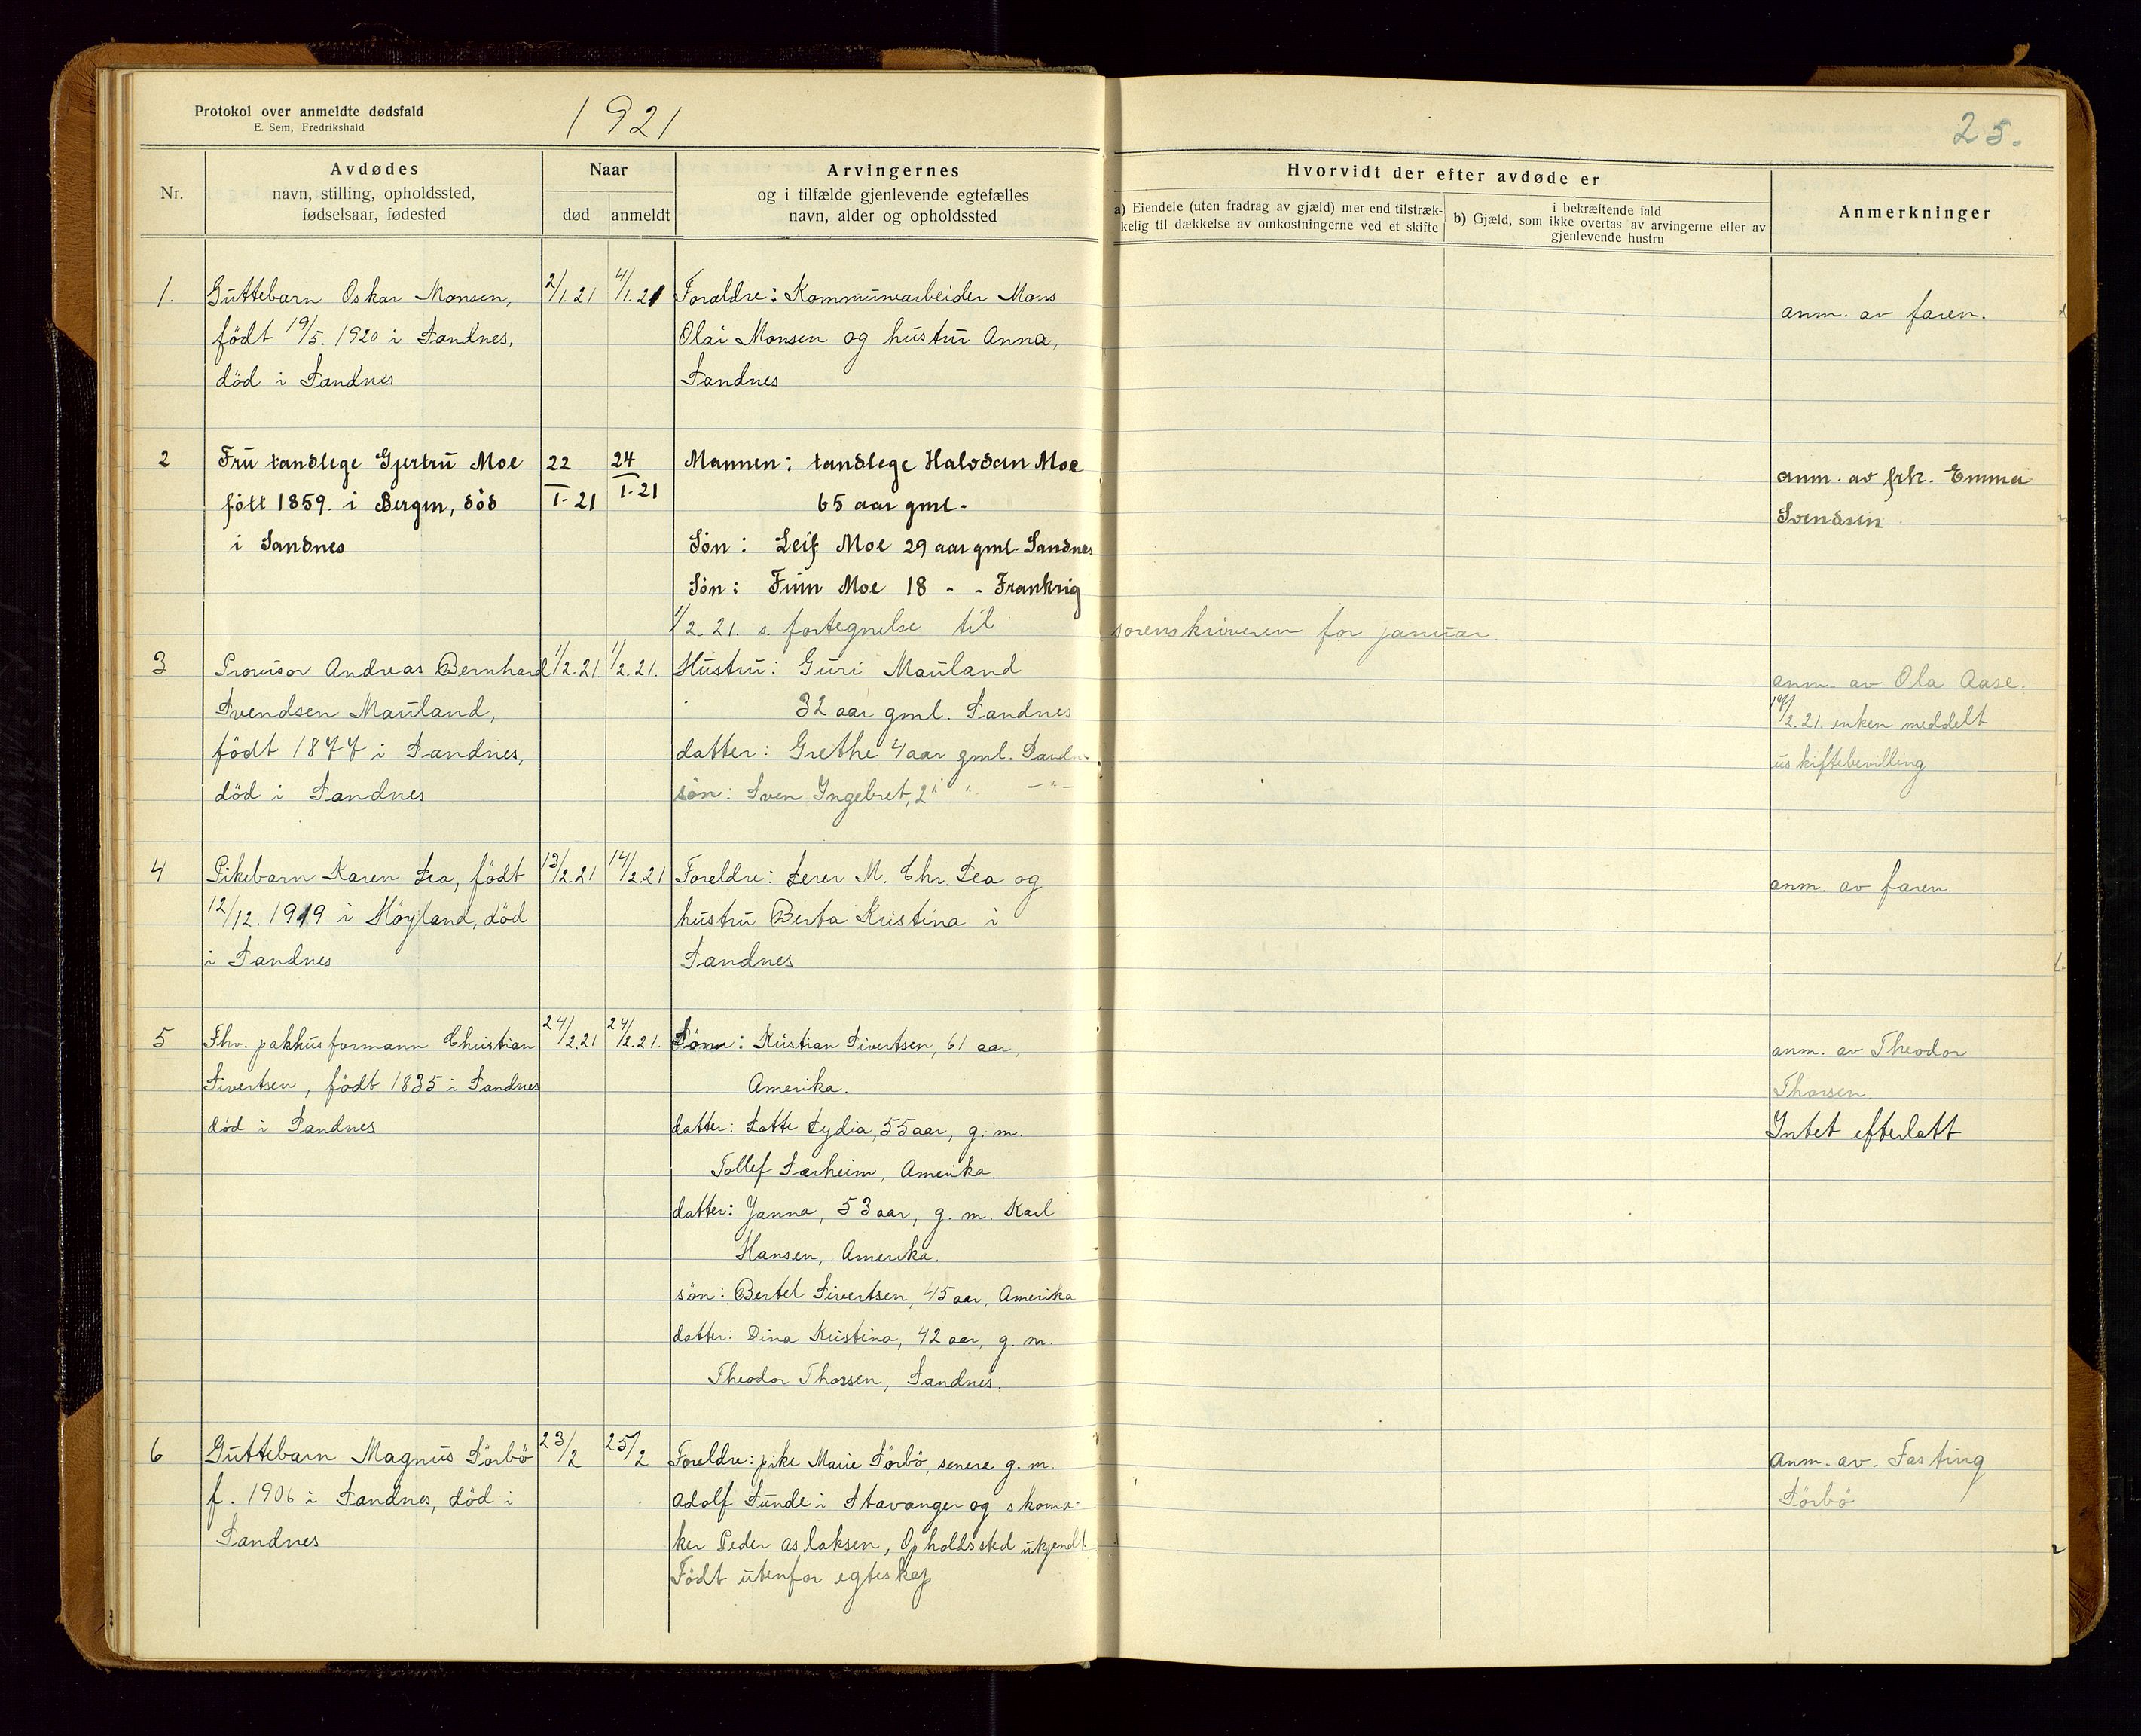 Protokol over anmeldte dødsfald
E. Sem, Fredrikshald
1921
25.
Nr.
Avdødes
navn, stilling, opholdssted,
fødselsaar, fødested
Naar
død
anmeldt
Arvingernes
og i tilfælde gjenlevende egtefælles
navn, alder og opholdssted
Hvorvidt der efter avdøde er
a) Eiendele (uten fradrag av gjæld) mer end tilstræk-
kelig til dækkelse av omkostningerne ved et skifte
i bekræftende fald
b) Gjæld, som ikke overtas av arvingerne eller av
gjenlevende hustru
Anmerkninger
1.
Guttebarn Oskar Monsen,
født 19/5. 1920 i Sandnes,
död i Sandnes
2/1.21
4/1.21
Foraldre: Kommunearbeider Mons
Olai Monsen og hustru Anna,
Sandnes
anm. av faren.
2
Fru tandlege Gjertru Moe
fött 1859. i Bergen, död
i Sandnes
22
I-21
24
I-21
Mannen: tandlege Halvdan Moe
65 aar gml.
Sön: Leif Moe 29 aar gml. Sandnes
Sön: Finn Moe 18 - - Frankrig
anm. av frk. Emma
Svendsen
1/2.21. s. fortegnelse til sorenskriveren for januar.
3
Provisor Andreas Bernhard
Svendsen Mauland,
födt 1877 i Sandnes,
död i Sandnes
1/2.21.
1/2.21.
Hustru: Guri Mauland
32 aar gml. Sandnes
datter: Grethe 4 aar gml. Sandn.
sön: Sven Ingebret, 2 " " - " -
anm. av Ola Aase.
/2.21. enken meddelt
uskiftebevilling
4
Pikebarn Karen Lea, födt
12/12. 1919 i Höyland, död
i Sandnes
13/2.21
14/2.21
Foreldre: Lerer M. Chr. Lea og
hustru Berta Kristina i
Sandnes
anm. av faren.
5
Fhv. pakhusformann Christian
Sivertsen, födt 1835 i Sandnes
död i Sandnes
24/2.21
24/2.21.
Sönn: Kristian Sivertsen, 61 aar,
Amerika.
datter: Lotte Lydia, 55 aar, g. m.
Tollef Sørheim, Amerika.
datter: Janna, 53 aar, g. m. Karl
Hansen, Amerika.
sön: Bertel Sivertsen, 45 aar, Amerika
datter: Dina Kristina, 42 aar, g. m.
Theodor Thorsen, Sandnes.
anm. av Theodor
Thorsen.
Intet efterlatt
6
Guttebarn Magnus Sörbö
f. 1906 i Sandnes, död i
Sandnes
23/2
25/2
Foreldre: pike Marie Sörbö, senere g. m.
Adolf Sunde i Stavanger og skoma-
ker Peder Aslaksen, Opholdssted ukjendt.
Födt utenfor egteskap
Anm. av. Fasting
Sörbö